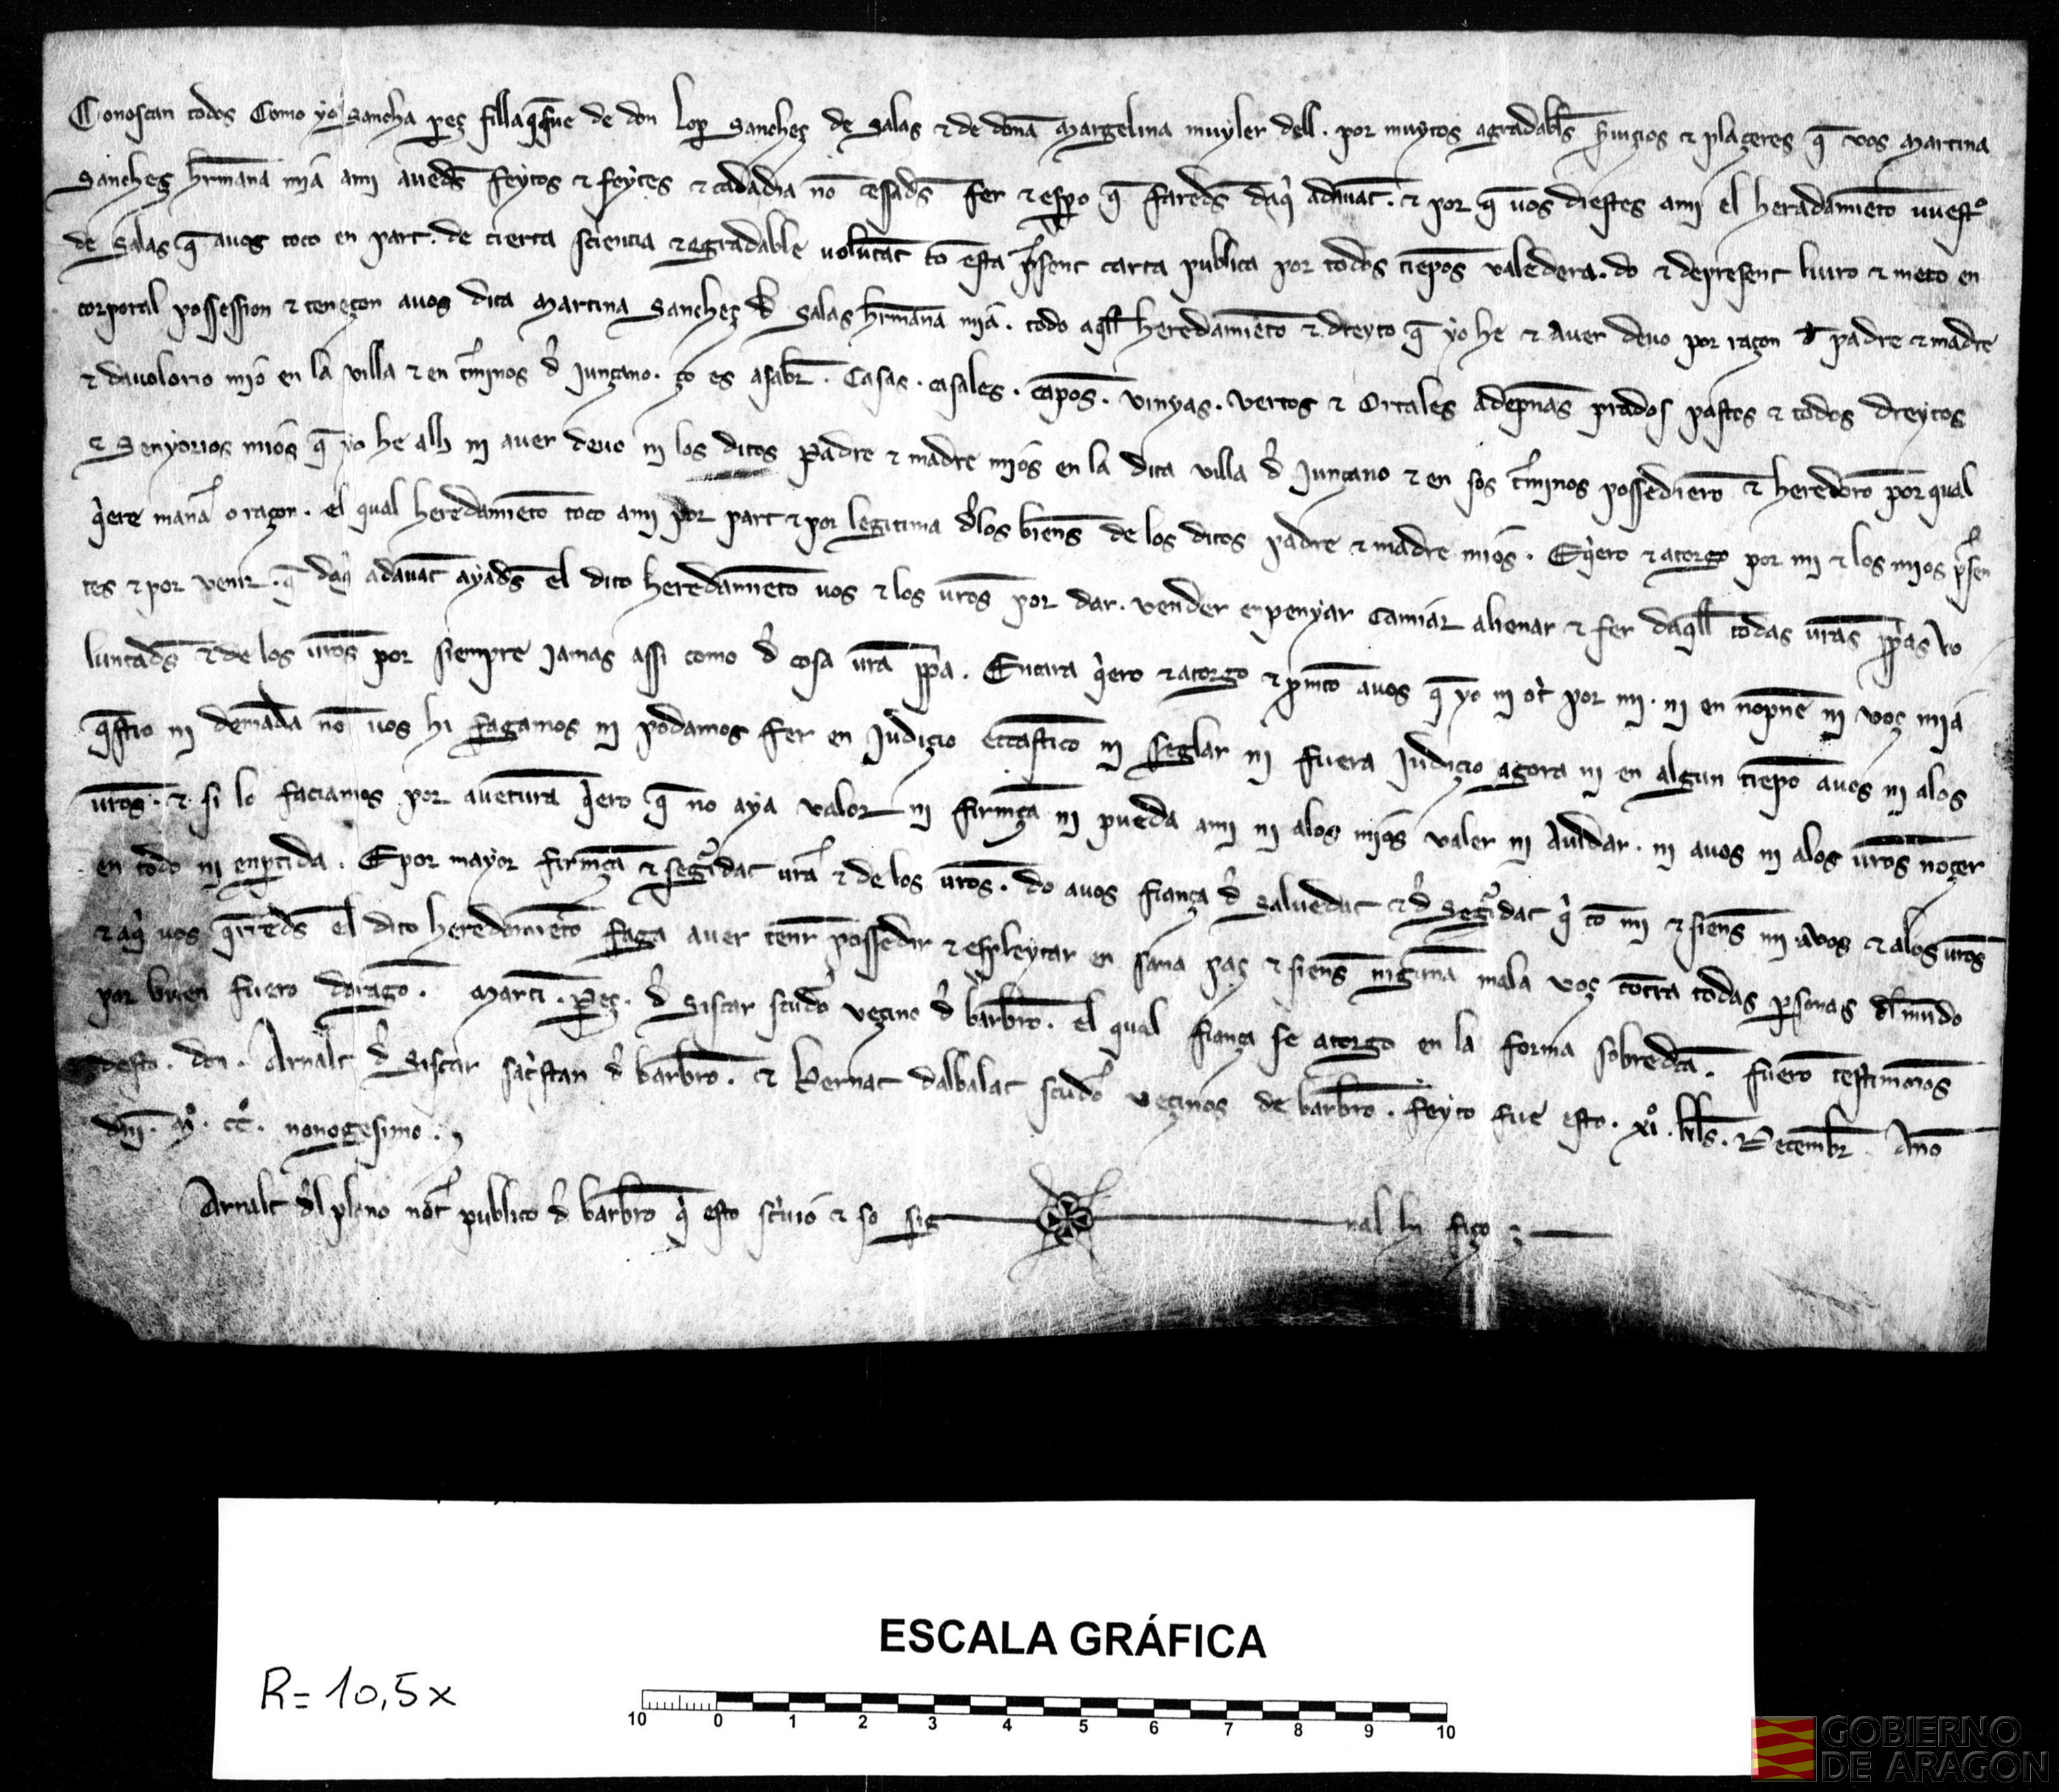 Conoscan todos Como yo Sancha pez filla q̃ fue de don Lop Sanchez de Salas ⁊ de dona Margelina muyler dell. por muytos agradabls̃ s̃uiçios ⁊ plaçeres q̃ vos Martina
Sanchez hrmana mia ami aueds̃ feytos ⁊ feytes ⁊ cadadia nō cessads̃ fer ⁊ esp̃o q̃ fareds̃ daq̍ adauāt. ⁊ por q̃ uos diestes ami el heradamiēto uuestº
de Salas q̃ auos toco en part. de cierta sciencia ⁊ agradable volūtat cō esta p̃sent carta publica por todos tiēpos valedera. do ⁊ depresent liuro ⁊ meto en
corporal possession ⁊ teneçon auos dita Martina Sanchez d̃ Salas hrmana mia. todo aq̃ll heredamiēto ⁊ dreyto q̃ yo he ⁊ auer deuo por raçon d̃ padre ⁊ madre
⁊ dauolorio mio en la villa ⁊ en t̃minos d̃ Junçano. ço es asabr̃. Casas. casales. cāpos. vinyas. vertos ⁊ Ortales adēpnas prados pastos ⁊ todos dreytos
⁊ Senyorios mios q̃ yo he alli ni auer deuo ni los ditos padre ⁊ madre mios en la dita villa d̃ Junçano ⁊ en sos t̃minos possediero̅ ⁊ heredoro̅ por qual
q̍ere man̄a o raçon. el qual heredamiēto toco ami por part ⁊ por legitima d̃los biens̃ de los ditos padre ⁊ madre mios. E q̍ero ⁊ atorgo por mi ⁊ los mios p̃sen
tes ⁊ por venir. q̃ daq̍ adauāt ayads̃ el dito heredamiēto uos ⁊ los ur̃os por dar. vender enpenyar camiar alienar ⁊ fer daq̃ll todas ur̃as pp̃as vo
luntads̃ ⁊ de los ur̃os por siempre jamas assi como d̃ cosa ur̃a pp̃a. Encara q̍ero ⁊ atorgo ⁊ p̃mēto auos q̃ yo ni ot̍ por mi. ni en nōpne ni voz mia
q̃stio ni demāda nō uos hi fagamos ni podamos fer en Judiçio eccāstico ni seglar ni fuera Judiçio agora ni en algun tiēpo auos ni alos
ur̃os. ⁊ si lo faciamos por auētura q̍ero q̃ no aya valor ni firmēça ni pueda ami ni alos mios valer ni aiudar. ni auos ni alos ur̃os noçer
en todo ni enp̃tida. E por mayor firmēça ⁊ seguridat ur̃a ⁊ de los ur̃os. do auos fiança d̃ Saluedat ⁊ d̃ Seguridat q̍ cō mi ⁊ siens̃ mi auos ⁊ alos ur̃os
⁊ aq̍ uos q̃rreds̃ el dito heredamiēto faga auer tenr̃ possedir ⁊ espleytar en sana paz ⁊ siens̃ niguna mala voz cōtra todas p̃sonas dl̃ mūdo
por buen fuero daragō. Martī. Pez. d̃ Siscar scudo̍ veçino d̃ barbrō. el qual fiança se atorgo en la forma sobredc̃a. fuerō testimonios
desto. don. Arnalt d̃ Siscar sac̍stan d̃ barbrō. ⁊ Bernat dalbalat scudo̍ veçinos de barbrō. feyto fue esto. xiº. kls̃. Decembr̃. Año
dnī. Mº. ccº. nonogesimo.
Arnalt d̃l plano not̃ publico d̃ barbrō q̍ esto sc̍uio ⁊ so sig nal hi fiço
R= 10,5x
ESCALA GRÁFICA
10 0 1 2 3 4 5 6 7 8 9 10
GOBIERNO
DE ARAGON